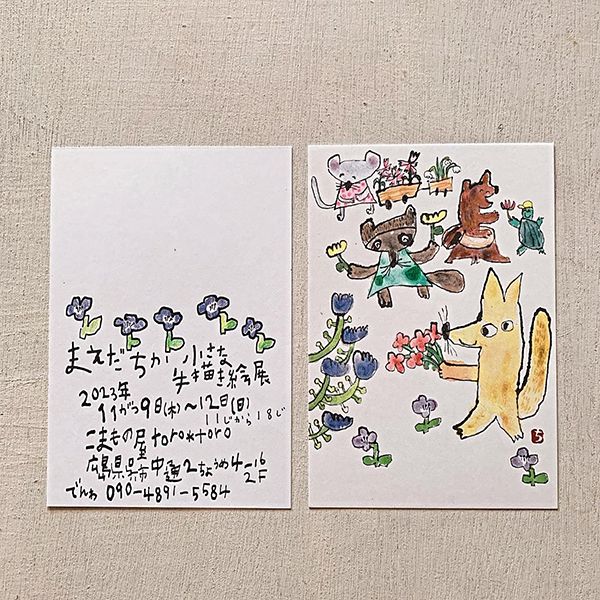 まえだちか 小さな
矢描き絵展
2023年
11がつ9日(木)〜12日(日)
11じから18じ
こまもの屋 toro*toro
広島県呉市中通2ちょうめ4-16
2F
でんわ 090-4891-5584
ち